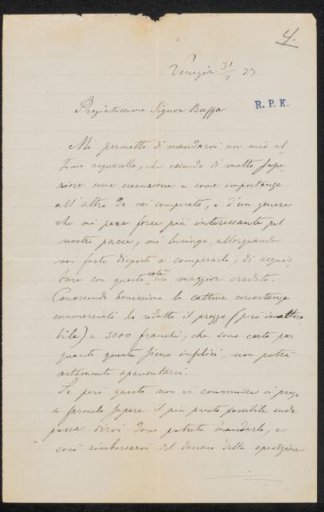 4.
Venezia 31/1 83
Pregiatissimo Signor Buffa
R. P. K.
Mi permetto di mandarvi un mio ul
timo acquarello, che essendo di molto supe
riore come esecuzione e come importanza
all'altro da voi comperato, e d'un genere
che mi pare forse più interessante pel
vostro paese, mi lusingo, allorquando
voi foste disposti a comperarlo, di acqui
stare con questo un maggior credito.
Conoscendo benissimo le cattive circostanze
commerciali ho ridotto il prezzo (più inattac
bile) a 3000 franchi, che son certo per
quanto questa firma implichi, non potrà
certamente spaventarvi.
Se poi questo non vi convenisse vi prego
a farmelo sapere il più presto possibile onde
possa dirvi dove potrete mandarlo, e
così rimborsarvi del denaro della spedizione